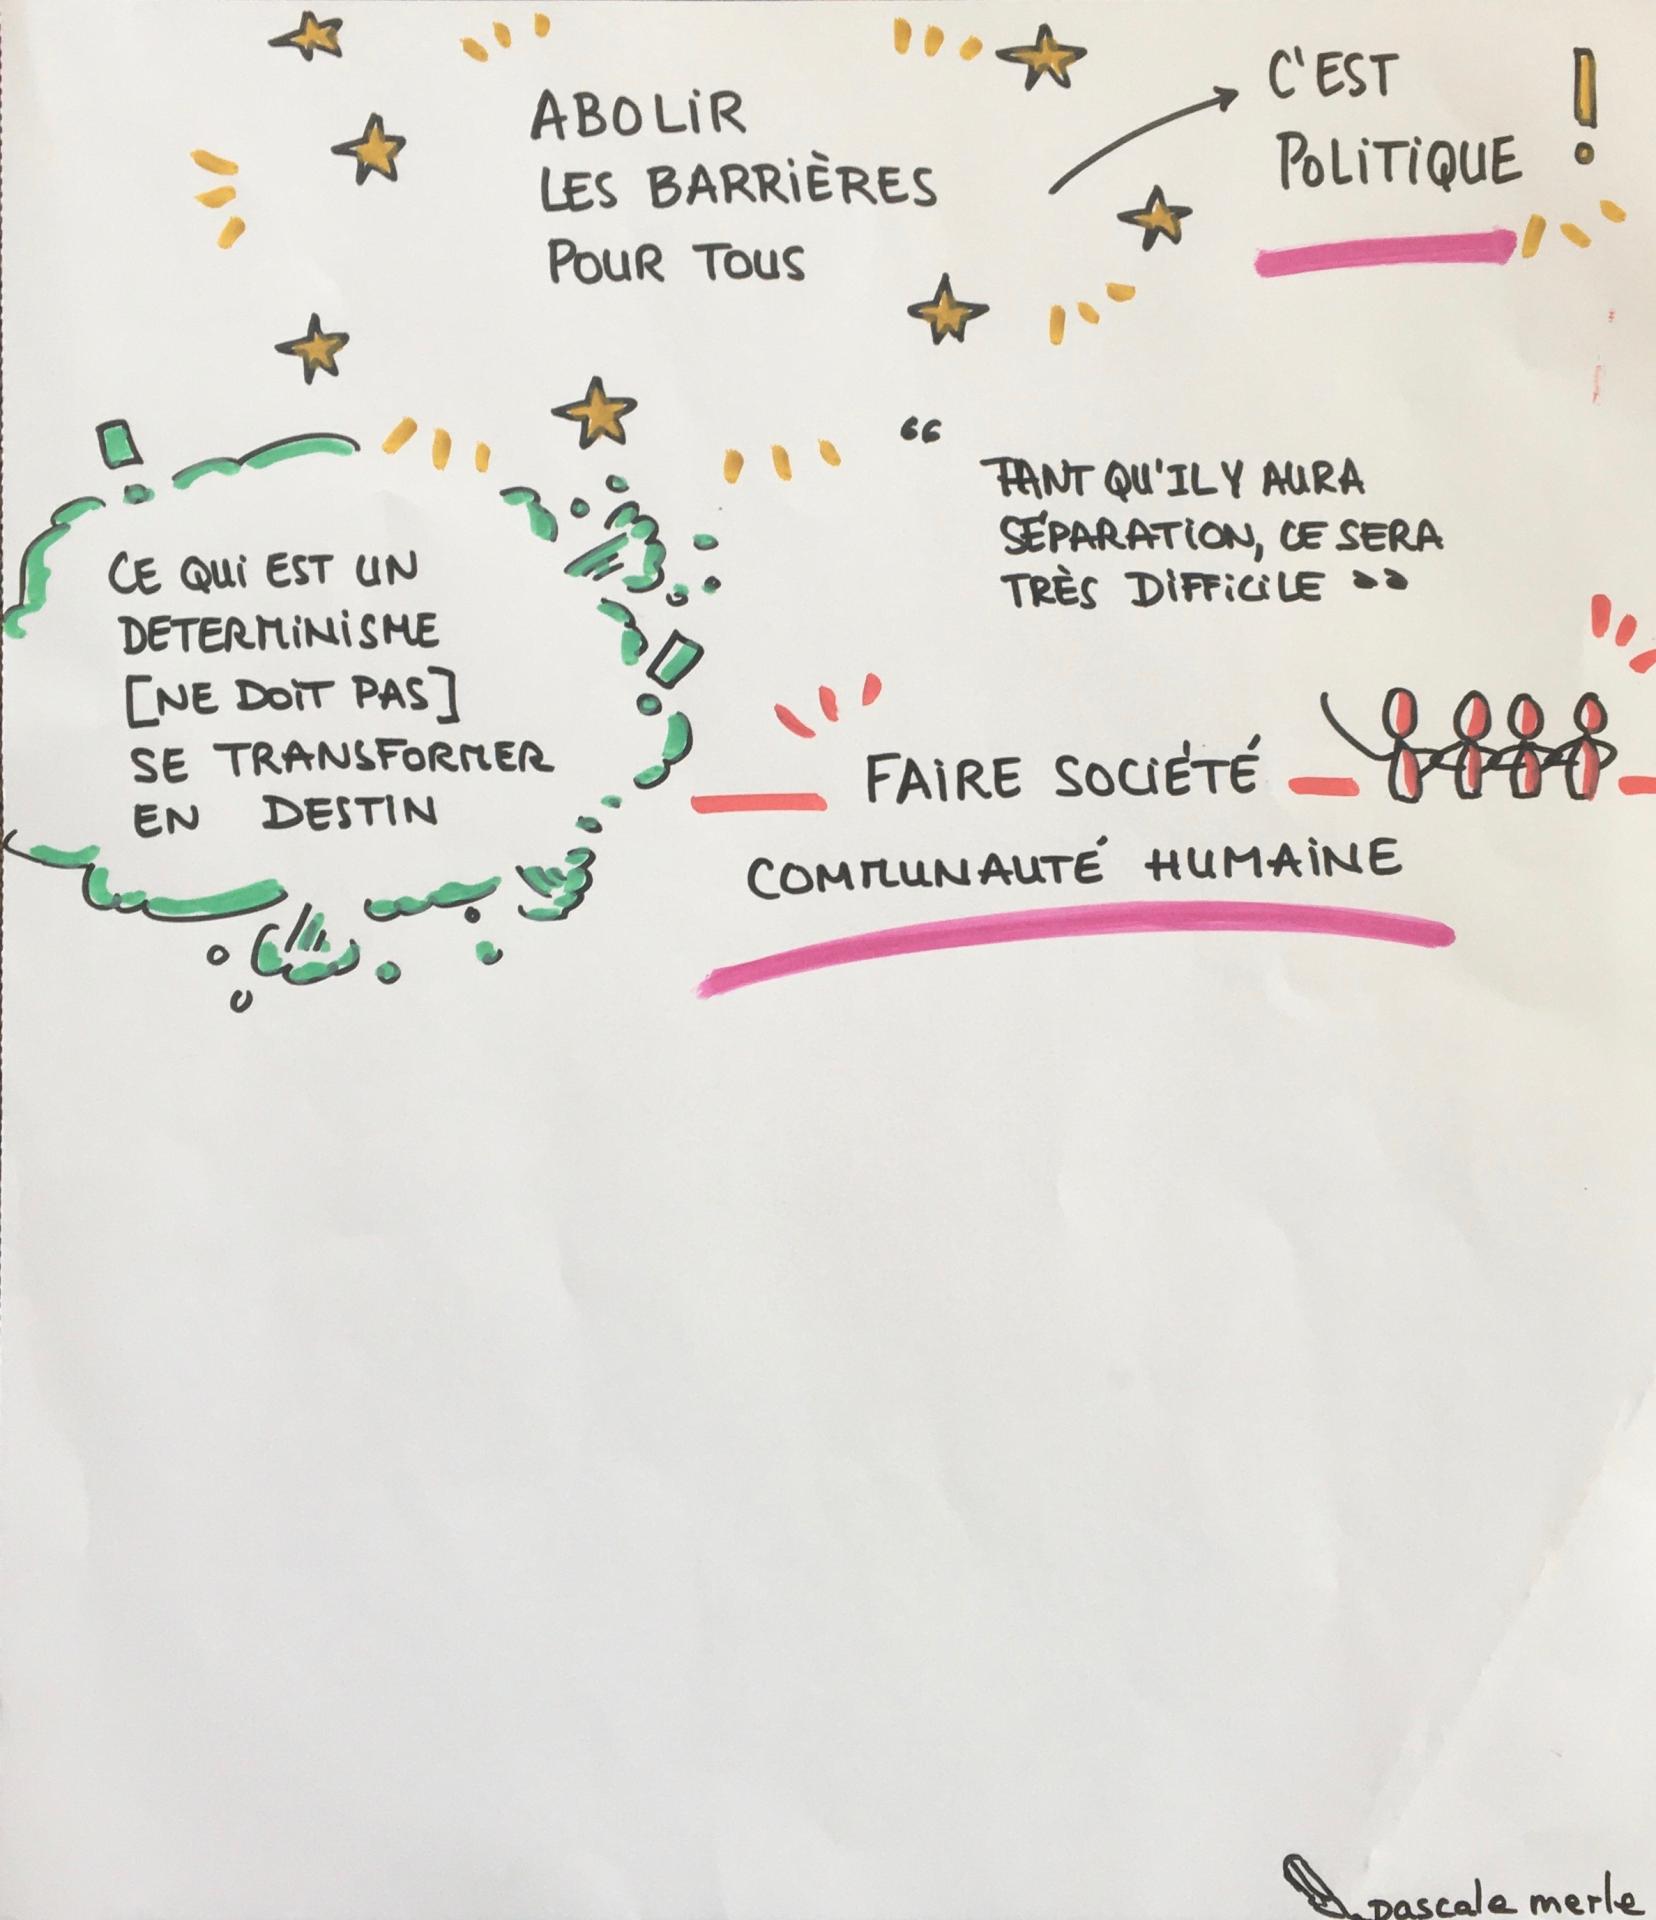 ABOLIR
LES BARRIÈRES
POUR TOUS
C'EST
POLITIQUE !
CE QUI EST UN
DETERMINISME
[NE DOIT PAS]
SE TRANSFORMER
EN DESTIN
“
TANT QU'IL Y AURA
SÉPARATION, CE SERA
TRÈS DIFFICILE »
FAIRE SOCIÉTÉ
COMMUNAUTÉ HUMAINE
pascale merle